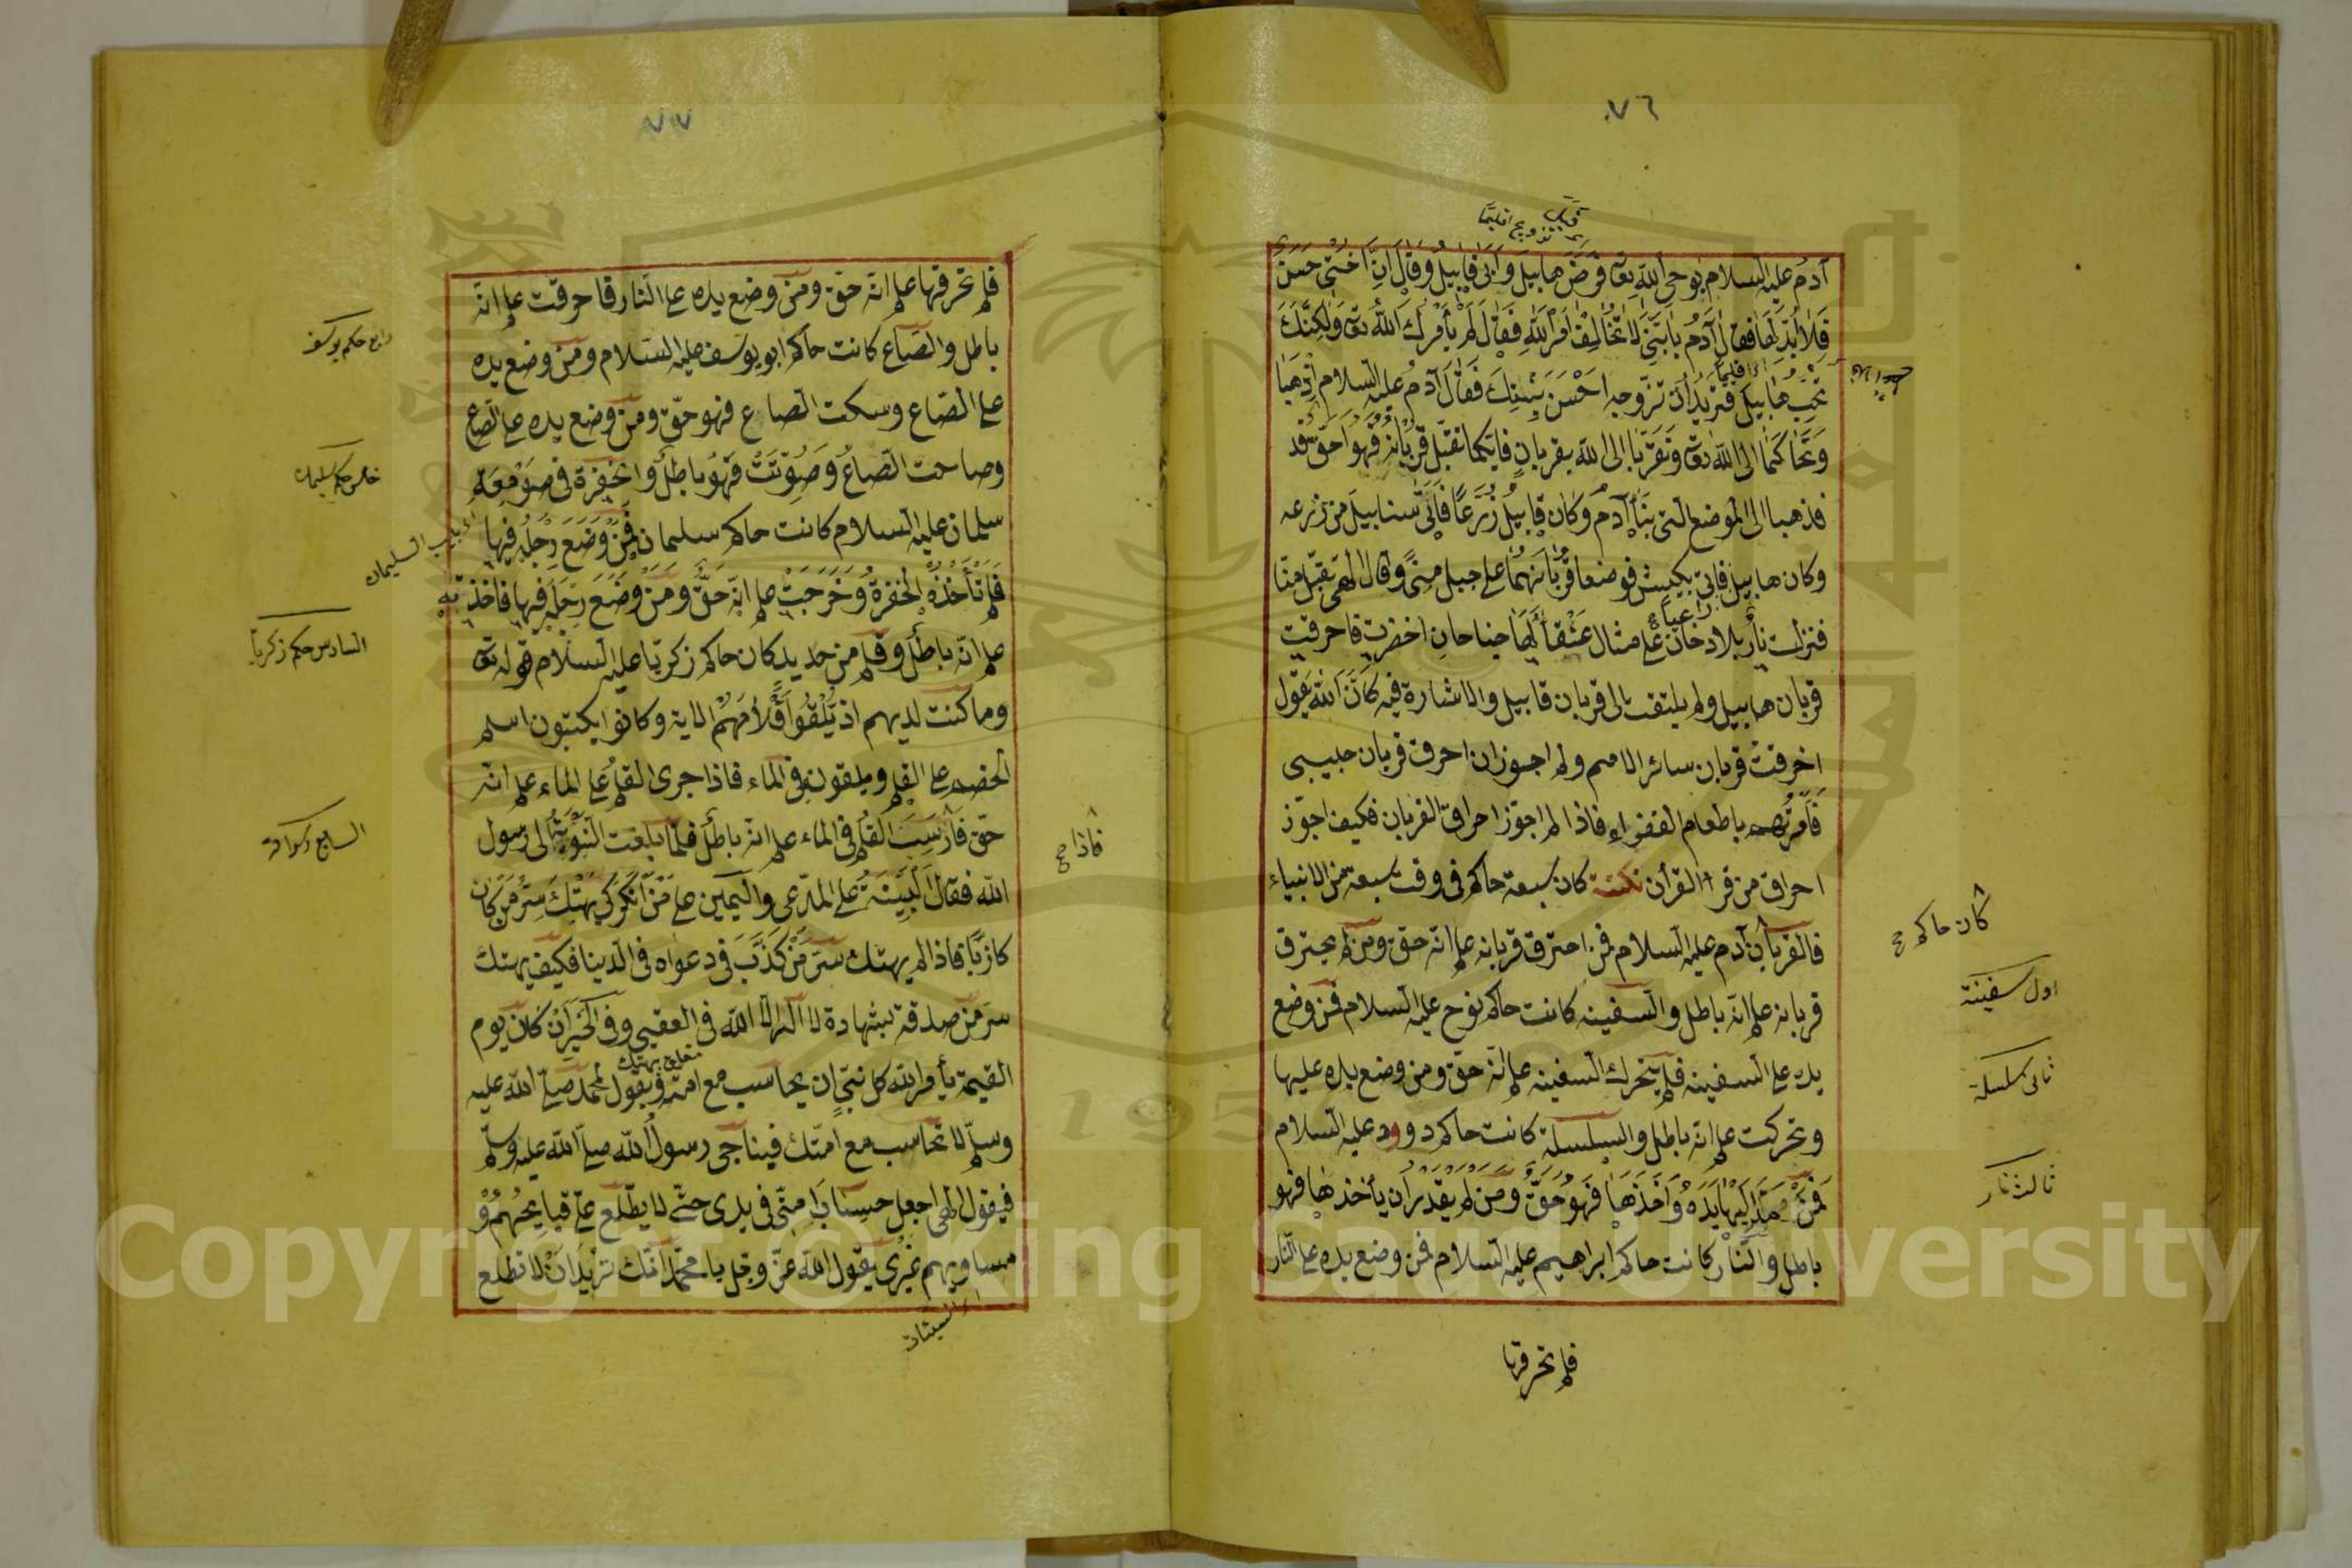 ٧٦
قبل
بتزويج اقليما
آدم عليه السلام بوحى الله تعا فرض هابيل وابى قابيل وقال ان اختى حسن
فلا ابدلها فقال آدم يا بنى لا تخالف امر الله فقال لم يأمرك الله تعا ولكنك
تحب هابيل فتريد ان تزوجه احسن بنتك فقال آدم عليه السلام اذهبا
اى اقليما
وتحاكما الى الله تعا وتقربا الى الله بقربان فايكما تقبل قربانه فهو احق قد
فذهبا الى الموضع التى بناء آدم وكان قابيل زرعا فاتى سنابيل من زرعه
وكان هابيل فاتى بكبش فوضعا قربانهما على جبل منى وقال الهى تقبل منا
راعيا
فنزلت نار بلا دخان على مثال عنقاء لها جناحان اخضرت فاحرقت
قربان هابيل ولم يلتفت الى قربان قابيل والاشارة فيه كان الله يقول
احرقت قربان سائر الامم ولم اجوز ان احرق قربان حبيبى
فامرتهم باطعام الفقراء فاذا لم اجوز احراق القربان فكيف اجوز
احراق من قرأ القرأن نكتة كان سبعة حاكم فى وقت سبعة من الانبياء
فالقربان آدم عليه السلام فمن احترق قربانه علم انه حق ومن لم يحترق
كان حاكم صح
قربانه علم انه باطل والسفينه كانت حاكم نوح عليه السلام فمن وضع
اول سفينة
يده على السفينه فلم يتحرك السفينه علم انه حق ومن وضع يده عليها
ثانى سلسلة
وتحركت علم انه باطل والسلسلة كانت حاكم داوود عليه السلام
فمن مد اليها يده واخذها فهو حق ومن لم يقدر ان يأخذها فهو
ثالث نار
باطل والنار كانت حاكم ابراهيم عليه السلام فمن وضع يده على النار
فلم تحرقها
٧٧
فلم تحرقها علم انه حق ومن وضع يده على النار فاحرقت علم انه
باطل والصاع كانت حاكم ابو يوسف عليه السلام ومن وضع يده
رابع حكم يوسف
على الصاع وسكت الصاع فهو حق ومن وضع يده على الصاع
وصاحت الصاع وصوتت فهو باطل والحفرة فى صومعة
خامس حكم سليمان
سليمان عليه السلام كانت حاكم سليمان فمن وضع رجله فيها
فلم تأخذه الحفرة وخرجت علم انه حق ومن وضع رجله فيها فاخذته
علم انه باطل وقلم من حديد كان حاكم زكريا عليه السلام قوله تعا
السادس حكم زكريا
وما كنت لديهم اذ يلقون اقلامهم الاية وكانوا يكتبون اسم
الخصم على القلم ويلقون فى الماء فاذا جرى القلم على الماء علم انه
حق فارسب القلم فى الماء علم انه باطل فلما بلغت النبوة الى رسول
فاذا صح
الله فقال البينة على المدعى واليمين على من انكر كى يهتك ستر من كان
كازبا فاذا لم يهتك ستر من كذب فى دعواه فى الدينا فكيف يهتك
ستر من صدقه بشهادة لا اله الا الله فى العقبى وفى الخبر ان كان يوم
القيمة يأمر الله كل نبى ان يحاسب مع امته ويقول لمحمد صلى الله عليه
وسلم لا تحاسب مع امتك فيناجى رسول الله صلى الله عليه وسلم
فيقول الهى اجعل حساب امتى فى يدى حتى لا يطلع على قبايحهم و
مساويهم غيرى يقول الله عز وجل يا محمد انك تريد ان لا تطلع
Copyright © King Saud University
195